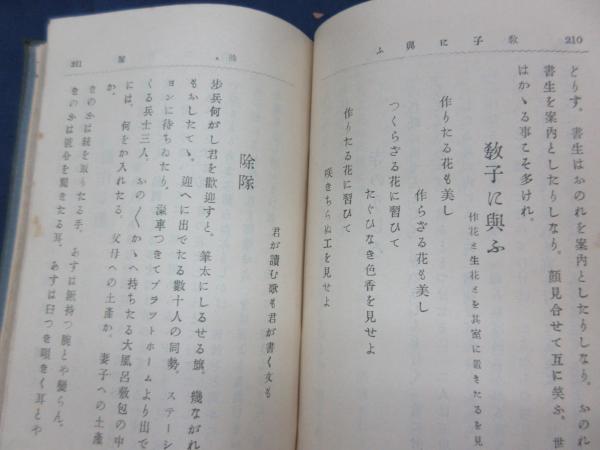 教子に與ふ
210
どりす。書生はおのれを案内としたりしなり。おのれ
書生を案内としたりしなり。顔見合せて互に笑ふ。世
はかゝる事こそ多けれ。
教子に與ふ
作花と生花とを其室に置きたるを見
作りたる花も美し
作らざる花も美し
つくらざる花に習ひて
たぐひなき色香を見せよ
作りたる花に習ひて
咲きちらぬ工を見せよ
君が讀む歌も君が書く文も
211
除隊
歩兵何がし君を歡迎すと。筆太にしるせる旗。幾ながれ
もおしたてゝ。迎へに出でたる數十人の同勢。ステーシ
ヨンに待ちゐたり。滊車つきてプラツトホームより出で
くる兵士三人。おの〳〵かゝへ持ちたる大風呂敷包の中
には。何をか入れたる。父母への土產か。妻子への土產
か。
きのふは銃を取りたる手。あすは鋤持つ腕とや變らん。
きのふは號令を聞きたる耳。あすは臼つき唄きく耳とや